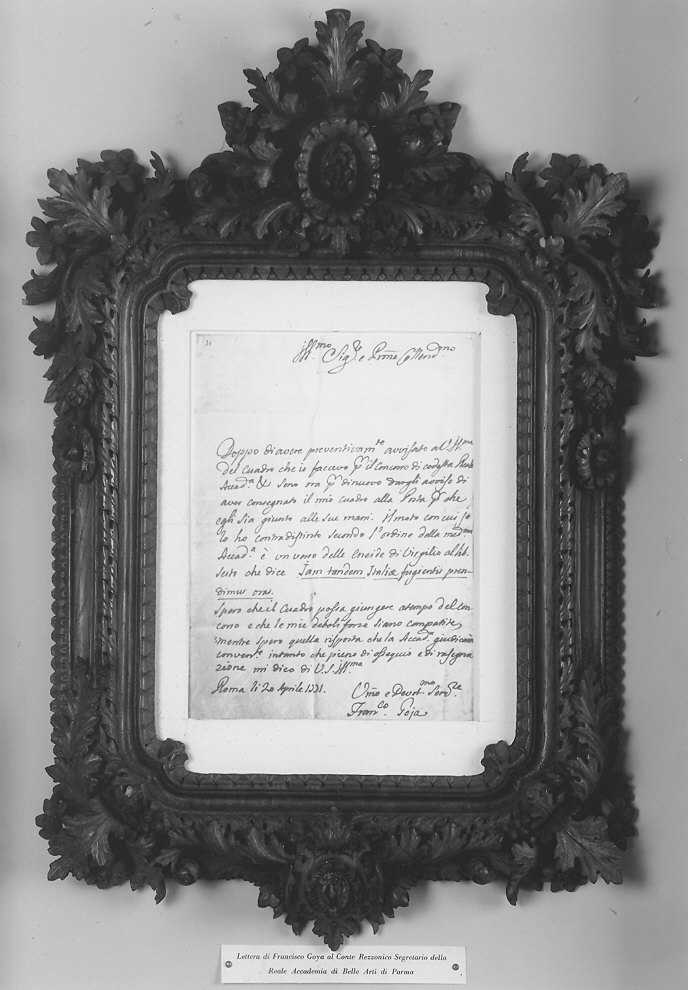 Ill.mo Sig.re e Prone Colleno.mo
Doppo di avere preventivam.te avvisato al S. Ill.ma
del Cuadro che io facevo p. il Concorso di codesta Reale
Accad.a & sono ora p. di nuovo dargli avviso di
aver consegnato il mio cuadro alla Posta p. che
egli sia giunto alle sue mani. Il moto con cui io
lo ho contradistinto secondo l'ordine della med.ma
Accad.a è un verso delle Eneide di Virgilio al Lib.
sesto che dice Iam tandem Italiæ fugientis pren-
dimus oras.
Spero che il Cuadro possa giungere a tempo del Con-
corso e che le mie deboli forze siano compatite,
mentre spero quella risposta che la Accad.a giudicara
convent.e intanto che pieno di ossequio e di rasegna
zione mi dico di V.S. Ill.ma
Roma li 20 Aprile 1771. Umo e Devot.mo Serv.re
Fran.co Goja
Lettera di Francisco Goya al Conte Rezzonico Segretario della
Reale Accademia di Belle Arti di Parma